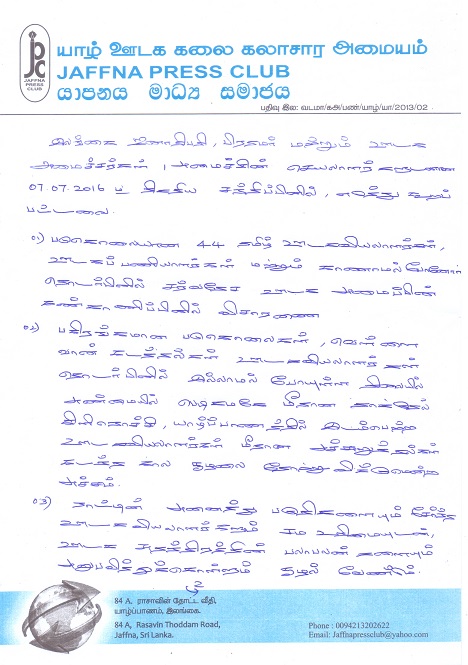 யாழ் ஊடக கலை கலாசார அமையம்
JAFFNA PRESS CLUB
යාපනය මාධ්‍ය සමාජය
JAFFNA PRESS CLUB
பதிவு இல: வடமா/கஅ/பண்/யாழ்/யா/2013/02
இலங்கை ஜனாதிபதி, பிரதமர் மற்றும் ஊடக
அமைச்சர்கள், அமைச்சின் செயலாளர்களுடனான
07.07.2016 ம் திகதிய சந்திப்பினில், எடுத்து கூறப்
பட்டவை.
01) படுகொலையான 44 தமிழ் ஊடகவியலாளர்கள்,
ஊடகப் பணியாளர்கள் மற்றும் காணாமல் போனோர்
தொடர்பினில் சர்வதேச ஊடக அமைப்பின்
கண்காணிப்பினில் விசாரணை
02) பகிரங்கமான படுகொலைகள், வெள்ளை
வான் கடத்தல்கள் ஊடகவியலாளர்கள்
தொடர்பினில் இல்லாமல் போயுள்ள நிலையில்
அண்மையில் மீதான தாக்குதல்
கிளிநொச்சி, யாழ்ப்பாணத்தில் இடம்பெற்ற
ஊடகவியலாளர்கள் மீதான அச்சுறுத்தல்கள்
கடந்த கால சூழலை தோற்றுவித்துள்ள
அச்சம்.
03) நாட்டின் அனைத்து பகுதிகளையும் சேர்ந்த
ஊடகவியலாளர்களும் சம உரிமையுடன்,
ஊடக சுதந்திரத்தின் பலாபலன்களையும்
அனுபவித்துக்கொள்ளும் சூழல் வேண்டும்.
84 A, ராசாவின் தோட்ட வீதி,
யாழ்ப்பாணம், இலங்கை.
84 A, Rasavin Thoddam Road,
Jaffna, Sri Lanka.
Phone : 0094213202622
Email: Jaffnapressclub@yahoo.com